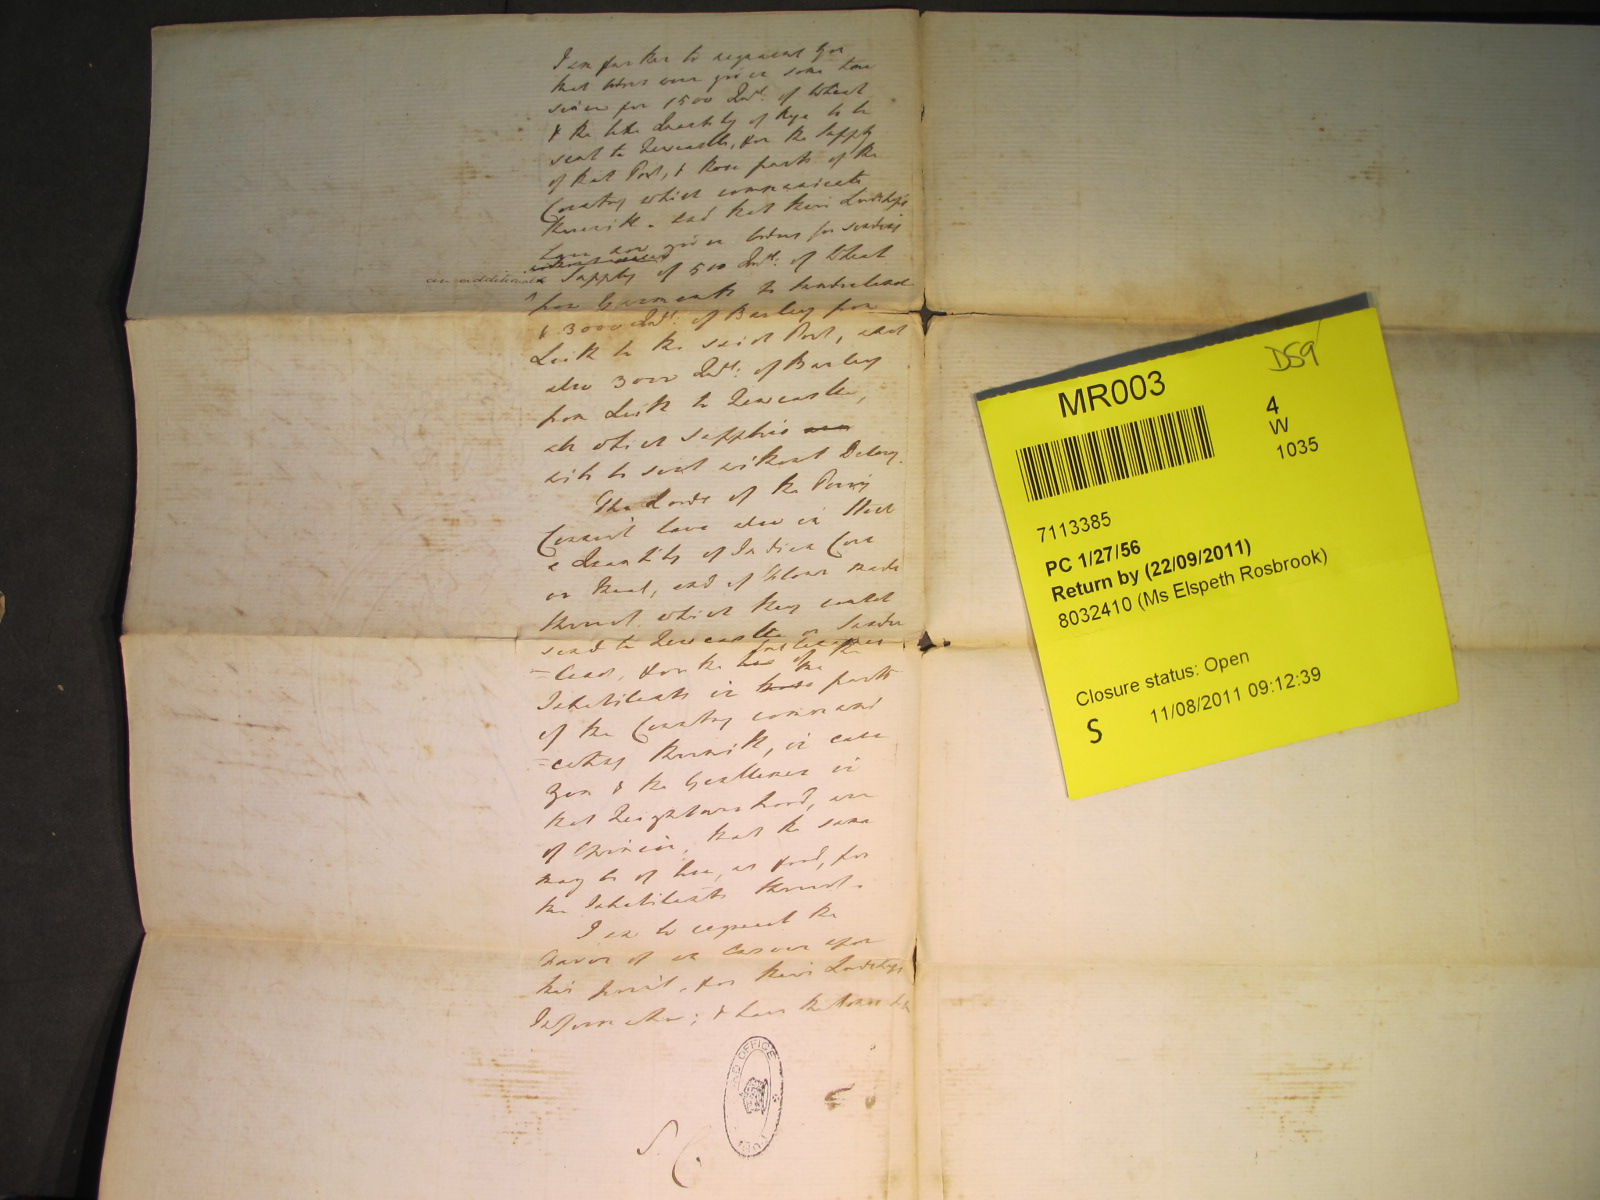 I am further to acquaint you
that orders were given some time
since for 1500 Qrs. of Wheat
& the like Quantity of Rye to be
sent to Newcastle, for the supply
of that Port, & those parts of the
Country which communicate
therewith. and that their Lordships
have now given Orders for sending
an additional Supply of 500 Qrs. of Wheat
from to Sunderland
& 3000 Qrs. of Barley from
Leith to the said Port, and
also 3000 Qrs. of Barley
from Leith to Newcastle,
all which Supplies
will be sent without Delay.
The Lords of the Privy
Council have also in Stock
a Quantity of Indian Corn
or Meal, and of Flour made
thereof, which they could
send to Newcastle or Sunder
=land, for the of the
Inhabitants in those parts
of the Country communi
=cating therewith, in case
you & the Gentlemen in
that Neighbourhood, are
of Opinion, that the same
may be of Use, as food, for
the Inhabitants thereof.
I am to request the
favor of an Answer upon
this point, for their Lordships
Information; & have the honor
S C.
OFFICE
MR003
DS9
4
W
1035
7113385
PC 1/27/56
Return by (22/09/2011)
8032410 (Ms Elspeth Rosbrook)
Closure status: Open
S 11/08/2011 09:12:39